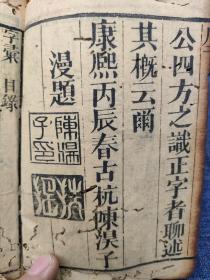 公四方之識正字者聊述
其概云爾
康熙丙辰春古杭陳淏子
漫題
陳淏子印
字彙 目錄